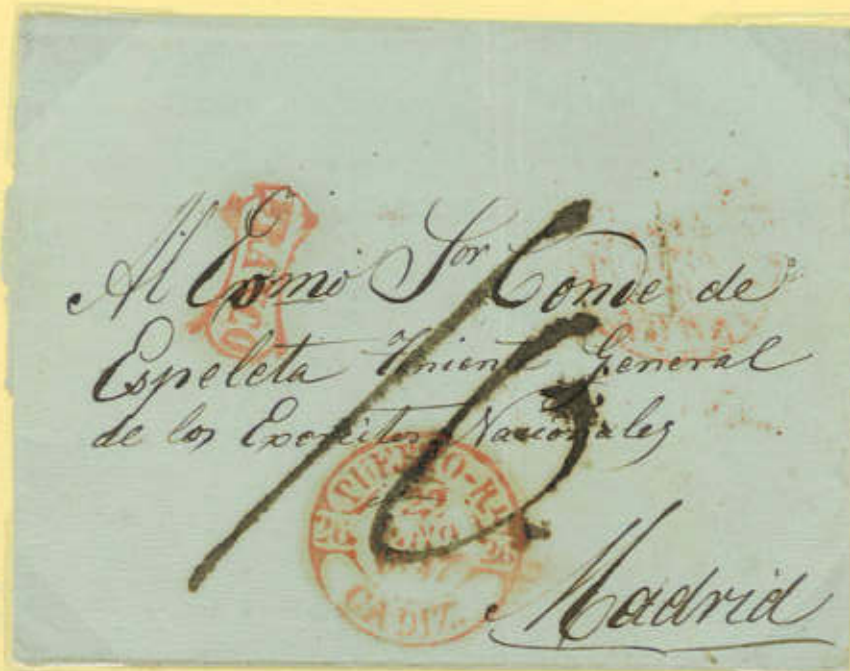 Al Exmo Sor Conde de
Espeleta Teniente General
de los Exercitos Nacionales
16
PUERTO-RL
26 22 26
ENO
CADIZ
Madrid